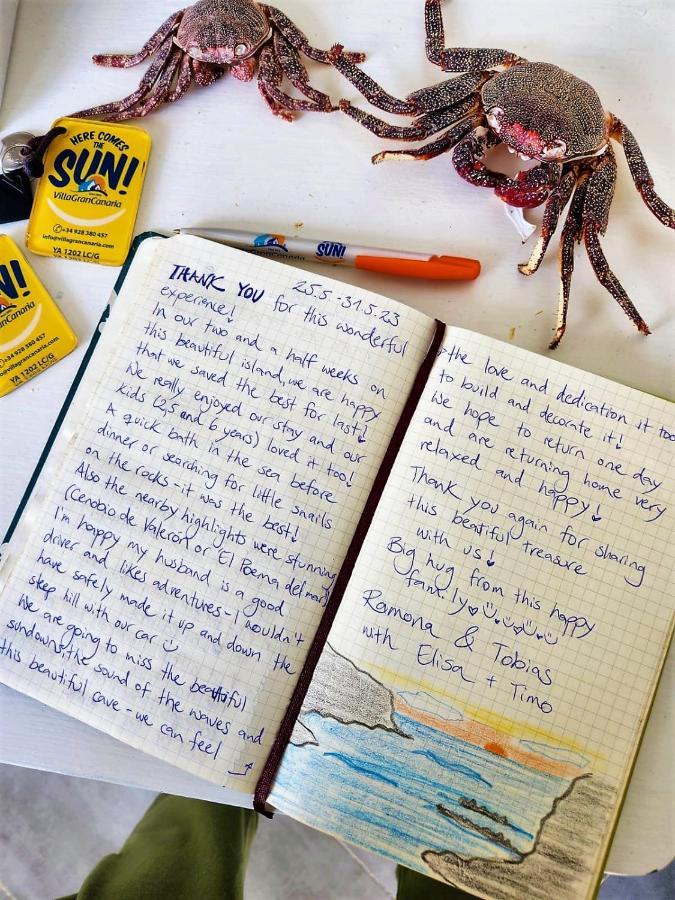 HERE COMES
THE
SUN!
VillaGranCanaria
+34 928 380 457
info@villagrancanaria.com
YA 1202 LC/G
N!
Canaria
+34 928 380 457
@villagrancanaria.com
YA 1202 LC/G
SUN!
25.5 - 31.5.23
THANK YOU for this wonderful
experience!
In our two and a half weeks on
this beautiful island, we are happy
that we saved the best for last!
We really enjoyed our stay and our
kids (2,5 and 6 years) loved it too!
A quick bath in the sea before
dinner or searching for little snails
on the rocks - it was the best!
Also the nearby highlights were stunning
(Cenobio de Valerón or El Poema del mar)
I'm happy my husband is a good
driver and likes adventures - I wouldn't
have safely made it up and down the
steep hill with our car
We are going to miss the beautiful
sundowns, the sound of the waves and
this beautiful cave - we can feel
the love and dedication it too
to build and decorate it!
We hope to return one day
and are returning home very
relaxed and happy!
Thank you again for sharing
this beatiful treasure
with us!
Big hug from this happy
family
Ramona & Tobias
with Elisa + Timo